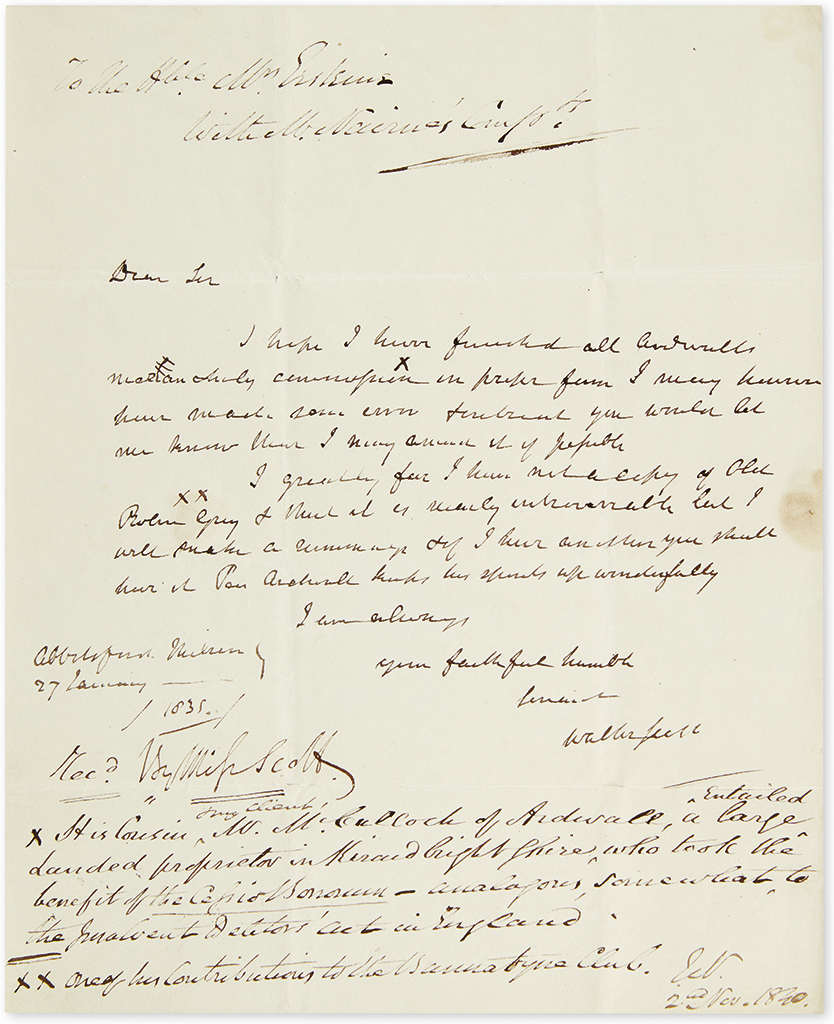 To the Hble. Mrs Erskine
With Mr. Nairne's Compts.
Dear Sir
I hope I have finished all Ardwalls
melancholy commission x in proper form I may however
have made some error & intreat you would let
me know that I may amend it if possible
I greatly fear I have not a copy of Old
x x
Robin Gray & that it is nearly introuvable but I
will make a rummage & if I have another you shall
have it Poor Ardwall keeps his spirits up wonderfully
I am always
your faithful humble
servant
Walter Scott
Abbotsford Melrose
27 January
1831
Recd. By Miss Scott.
x His Cousin, my Client, Mr. McCullock of Ardwall, a large Entailed
Landed proprietor in Kircudbright Shire, who took the
benefit of the Cessio Bonorum – analogous, somewhat, to
the Insolvent Debtors' act in England
x x one of his Contributions to the Bannatyne Club. J.N.
2nd Nov. 1840.